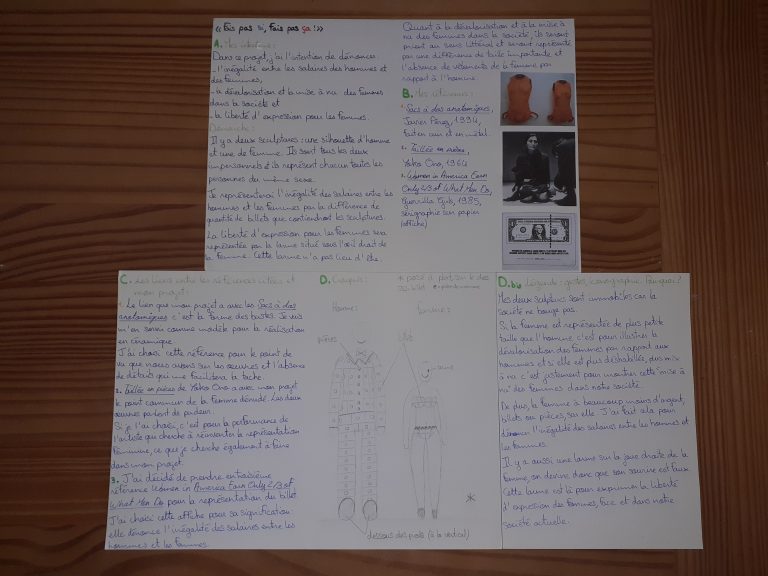 « Fais pas si, Fais pas ça ! »
A. Mes intentions :
Dans ce projet, j'ai l'intention de dénoncer :
- l'inégalité entre les salaires des hommes et
des femmes,
- la dévalorisation et la mise à nu des femmes
dans la société et
- la liberté d'expression pour les femmes.
Démarche :
Il y a deux sculptures : une silhouette d'homme
et une de femme. Ils sont tous les deux
impersonnels et ils représent chacun toutes les
personnes du même sexe.
Je représenterai l'inégalité des salaires entre les
hommes et les femmes par la différence de
quantité de billets que contiendront les sculptures.
La liberté d'expression pour les femmes sera
représentée par la larme situé sous l'œil droit de
la femme. Cette larme n'a pas lieu d'être.
Quant à la dévalorisation et à la mise à
nu des femmes dans la société, ils seront
au sens littéral et seront représenté
par une différence de taille importante et
l'absence de vêtements de la femme par
rapport à l'homme.
B. Mes références :
1. Sacs à dos anatomiques,
Javier Pérez, 1994,
fait en cuir et en métal.
2. Yoko Ono, 1964
3. Women in America Earn
Only 2/3 of What Men Do,
Guerrilla Girls, 1985,
sérigraphie sur papier
(affiche)
C. Les liens entre les références citées et
mon projet :
1. Le lien que mon projet a avec les Sacs à dos
anatomiques c'est la forme des bustes. Je vais
m'en servir comme modèle pour la réalisation
en céramique.
J'ai choisi cette référence pour le point de
vue que nous avons sur les œuvres et l'absence
de détails qui me facilitera la tâche.
2. Taillée en pièces de Yoko Ono a avec mon projet
le point commun de la femme dénudé. Les deux
œuvres parlent de pudeur.
Si je l'ai choisi, c'est pour la performance de
l'artiste qui cherche à réinventer la représentation
féminine, ce que je cherche également à faire
dans mon projet.
3. J'ai décidé de prendre en troisième
référence Women in America Earn Only 2/3 of
What Men Do pour la représentation du billet.
J'ai choisi cette affiche pour sa signification :
elle dénonce l'inégalité des salaires entre les
hommes et les femmes.
D. Croquis :
* posé à plat, sur le dos
Homme :
Femme :
pièces
billet
larme
dessous des pieds (à la vertical)
D.bis Légende : gestes, iconographie. Pourquoi ?
Mes deux sculptures sont immobiles car la
société ne bouge pas.
Si la femme est représentée de plus petite
taille que l'homme c'est pour illustrer la
dévalorisation des femmes par rapport aux
hommes et si elle est plus déshabillée, plus mis
à nu c'est justement pour montrer cette mise à
nu des femmes dans notre société.
De plus, la femme à beaucoup moins d'argent,
billets ou pièces, sur elle. J'ai fait cela pour
dénoncer l'inégalité des salaires entre les hommes et
les femmes.
Il y a aussi une larme sur la joue droite de la
femme, on devine donc que son sourire est faux.
Cette larme est là pour exprimer la liberté
d'expression des femmes, face et dans notre
société actuelle.